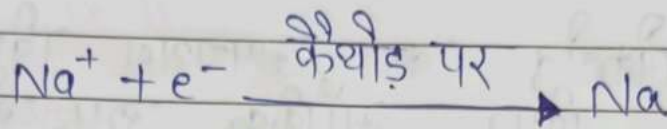 Na⁺ + e⁻ कैथोड़ पर → Na